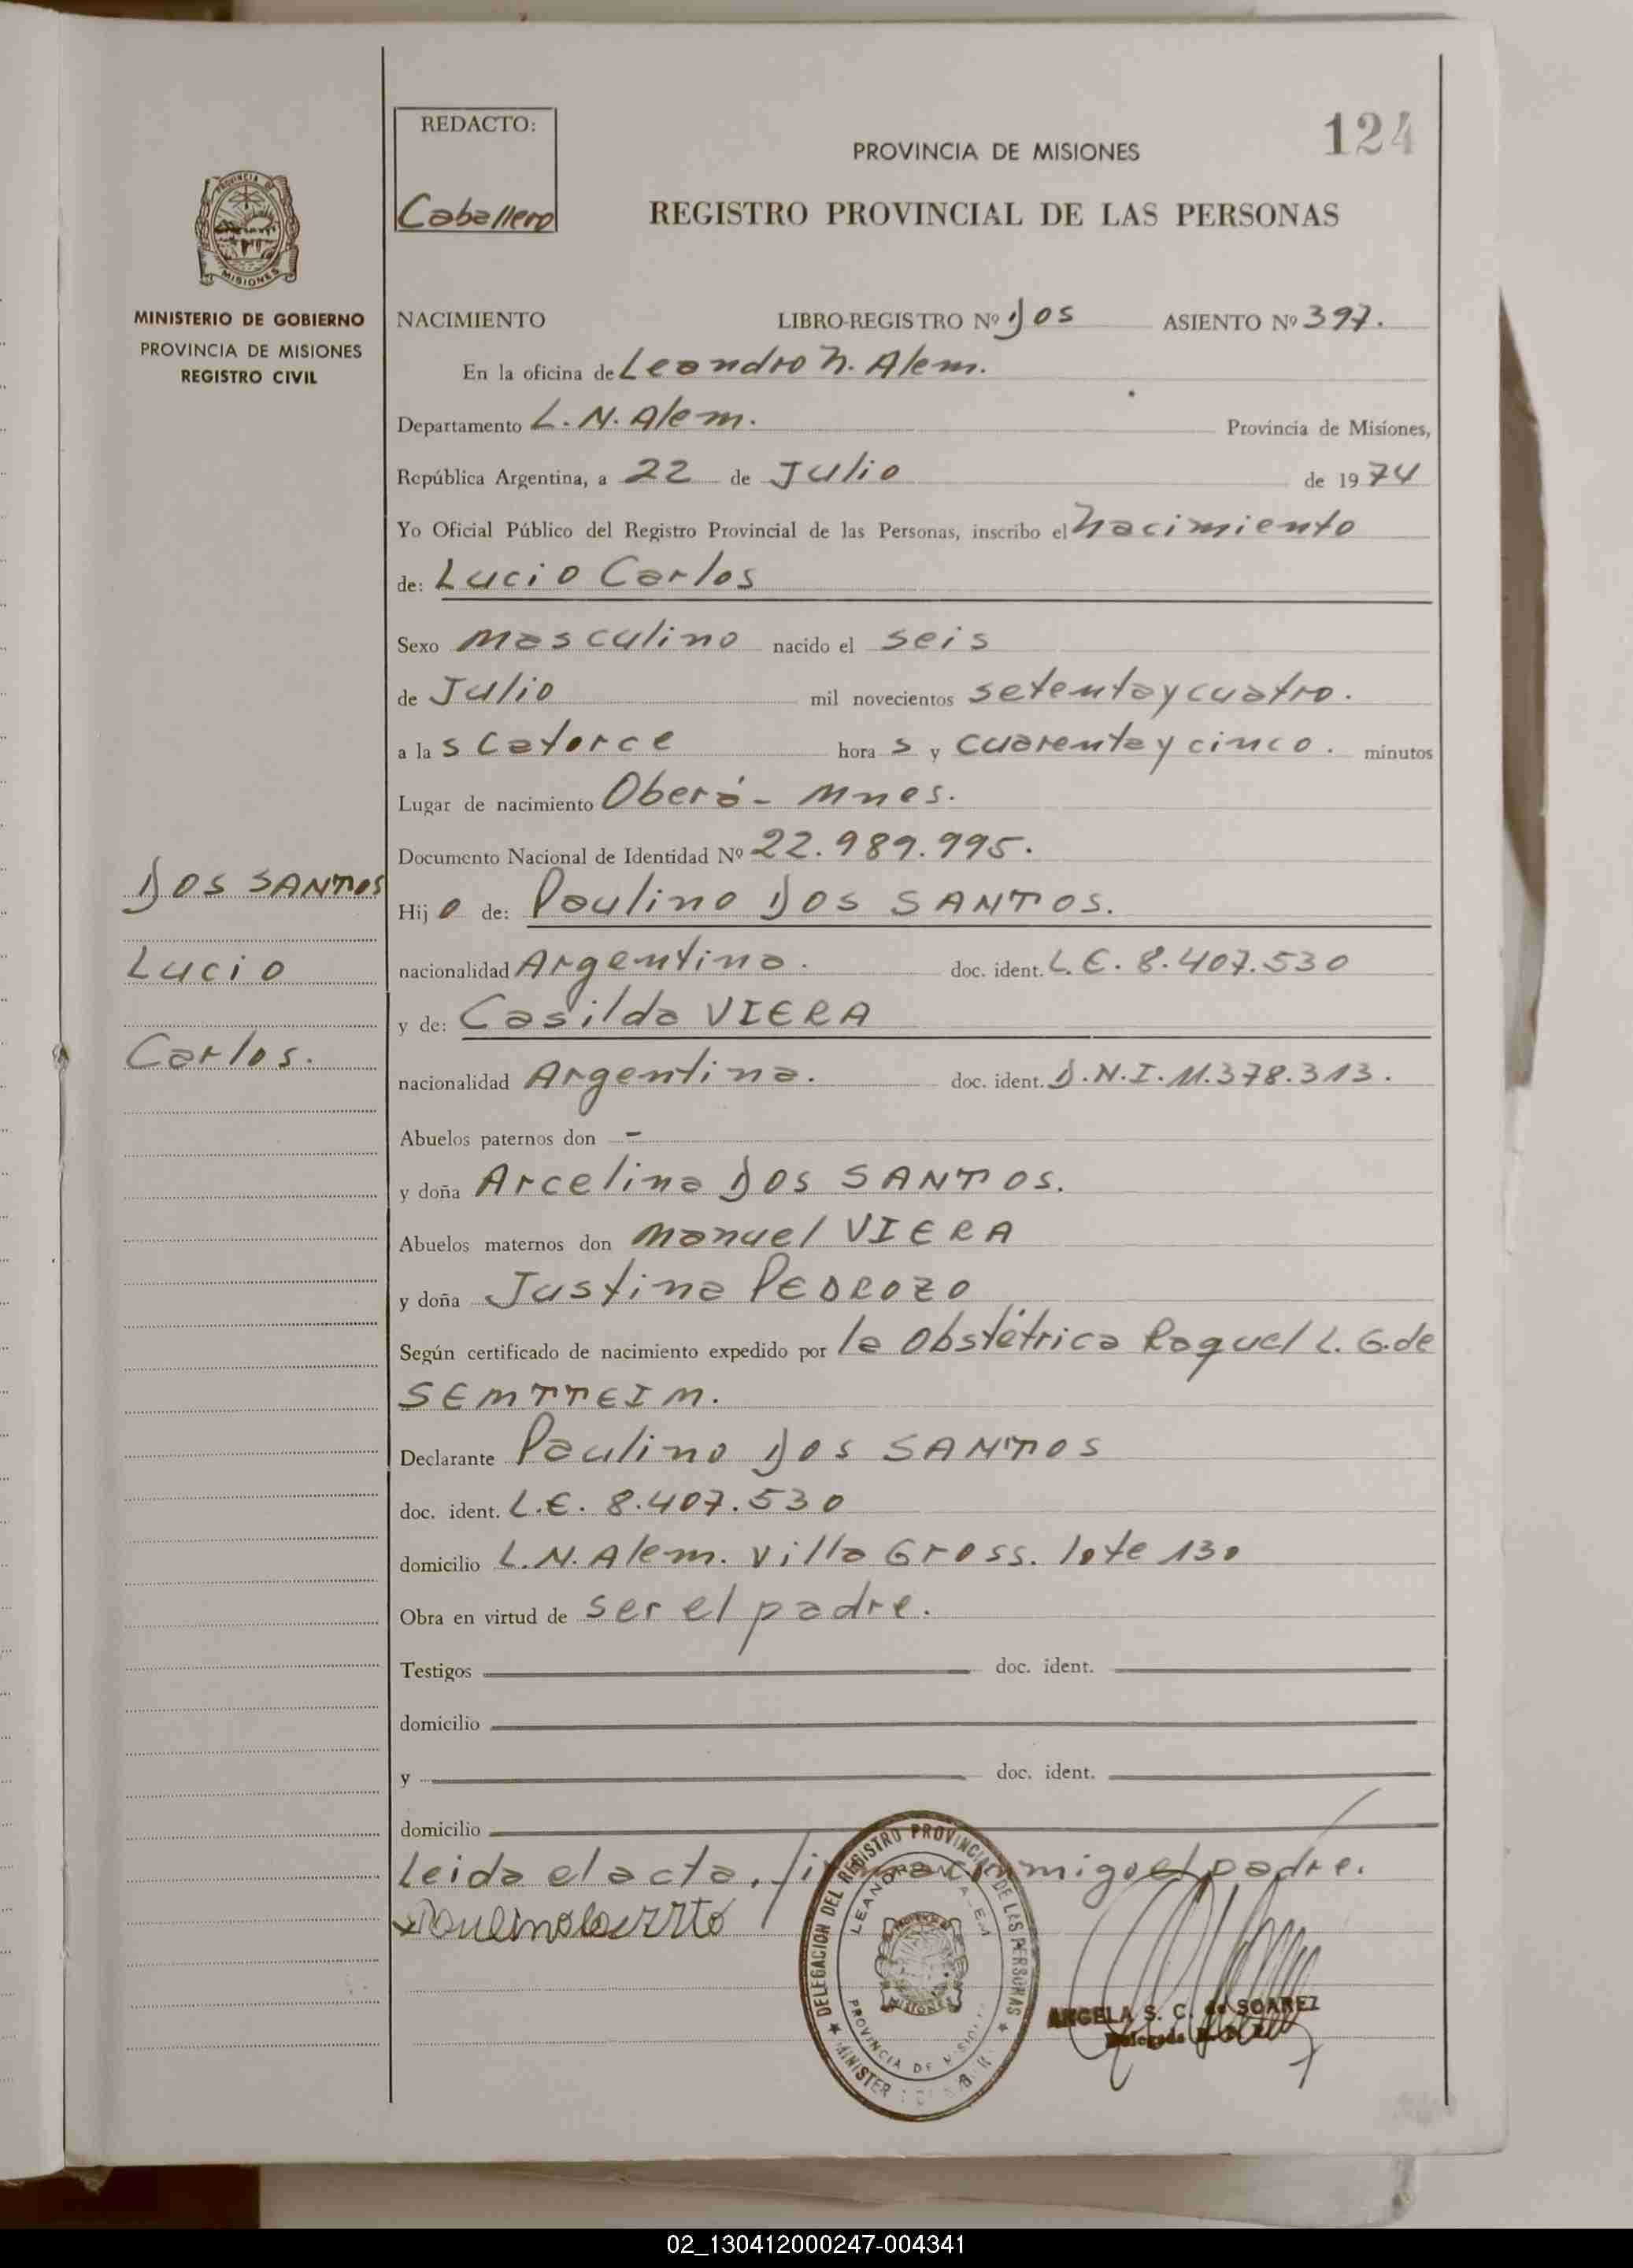 124
REDACTO:
Caballero
PROVINCIA DE MISIONES
REGISTRO PROVINCIAL DE LAS PERSONAS
PROVINCIA DE
MISIONES
MINISTERIO DE GOBIERNO
PROVINCIA DE MISIONES
REGISTRO CIVIL
NACIMIENTO LIBRO-REGISTRO Nº Dos ASIENTO Nº 397.
En la oficina de Leandro N. Alem.
Departamento L. N. Alem. Provincia de Misiones,
República Argentina, a 22 de Julio de 1974
Yo Oficial Público del Registro Provincial de las Personas, inscribo el Nacimiento
de: Lucio Carlos
Sexo Masculino nacido el seis
de Julio mil novecientos setenta y cuatro.
a las catorce horas y cuarenta y cinco. minutos
Lugar de nacimiento Oberá - Mnes.
Documento Nacional de Identidad Nº 22.989.995.
DOS SANTOS
Lucio
Carlos.
Hijo de: Paulino DOS SANTOS.
nacionalidad Argentina. doc. ident. L.E. 8.407.530
y de: Casilda VIERA
nacionalidad Argentina. doc. ident. D.N.I. 11.378.313.
Abuelos paternos don -
y doña Arcelina DOS SANTOS.
Abuelos maternos don Manuel VIERA
y doña Justina PEDROZO
Según certificado de nacimiento expedido por la Obstétrica Raquel L. G. de
SEMTTEIM.
Declarante Paulino DOS SANTOS
doc. ident. L.E. 8.407.530
domicilio L.N. Alem. Villa Gross. lote 130
Obra en virtud de ser el padre.
Testigos doc. ident.
domicilio
y doc. ident.
domicilio
Leida el acta, firma conmigo el padre.
DELEGACION DEL REGISTRO PROVINCIAL DE LAS PERSONAS
LEANDRO N. ALEM
PROVINCIA DE MISIONES
ANGELA S. C. de SOAREZ
Delegada
02_130412000247-004341